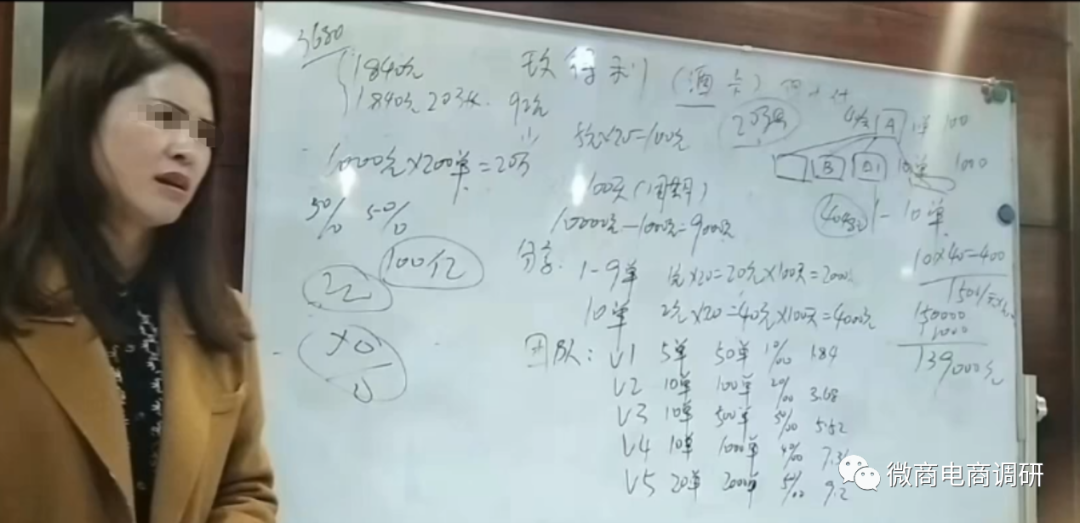 3680
1840元
1840元 203
1000元×200单=20万
5% 5%
100亿
22
(酒卡)
5元×20=100元
100天(周期)
10000元-1000元=9000元
分享:
1-9单 1元×20=20元×100天=2000元
10单 2元×20=40元×100天=4000元
团队: V1 5单 50单 1% 1.84
V2 10单 100单 2% 3.68
V3 10单 500单 5.52
V4 10单 1000单 4%
V5 20单 2000单 5% 9.2
A 1单 100
B 10单 1000
1-10单
10×40=400
150000
139000元
微商电商调研